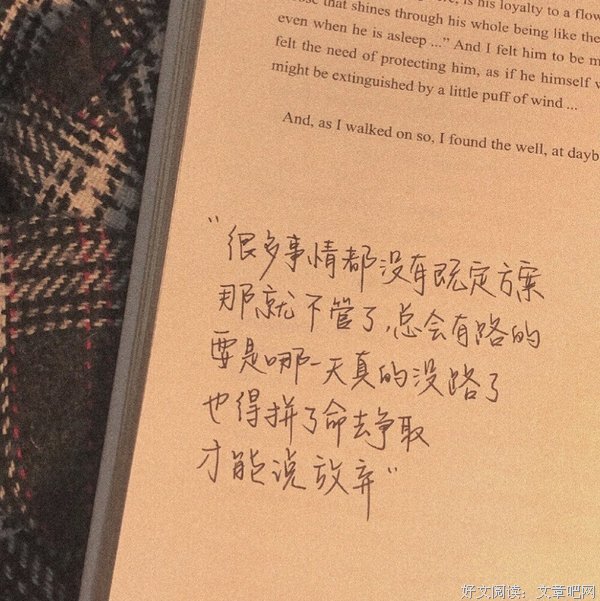 , is his loyalty to a flow
ose that shines through his whole being like the
even when he is asleep ...” And I felt him to be m
felt the need of protecting him, as if he himself
might be extinguished by a little puff of wind ...
And, as I walked on so, I found the well, at dayb
“很多事情都没有既定方案
那就不管了,总会有路的
要是哪一天真的没路了
也得拼了命去争取
才能说放弃”
好文阅读：文章吧网